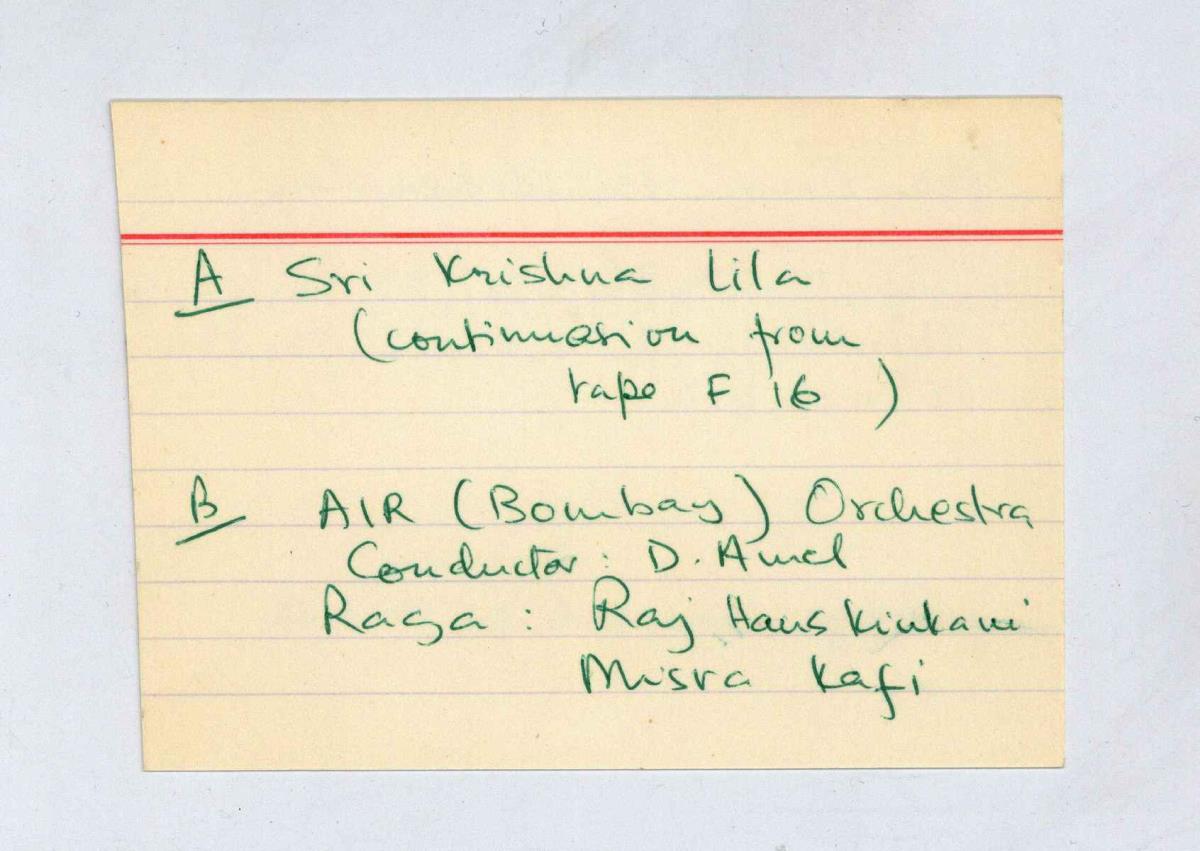 A Sri Krishna Lila
(continuation from
tape F 16)
B AIR (Bombay) Orchestra
Conductor: D. Amel
Raga: Raj Hans Kinkani
Misra Kafi